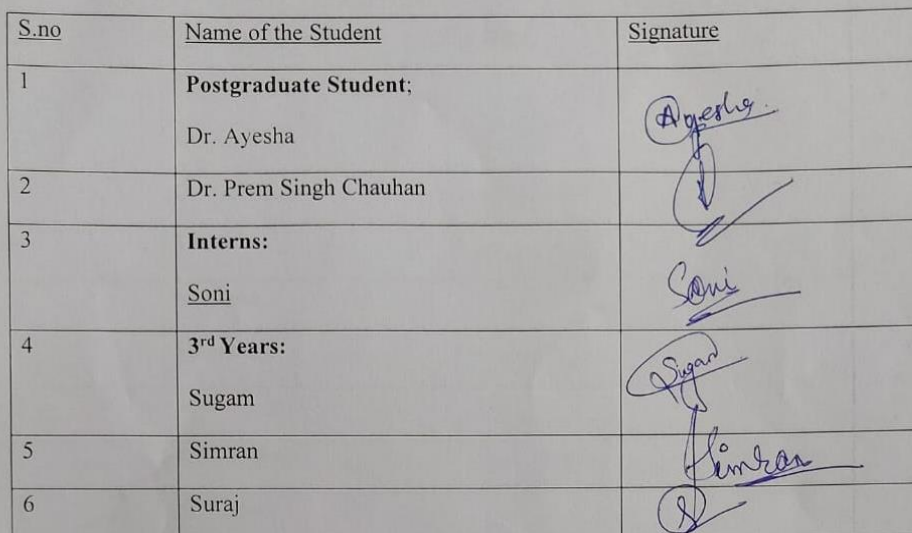 S.no Name of the Student Signature
1 Postgraduate Student;
Dr. Ayesha Ayesha
2 Dr. Prem Singh Chauhan
3 Interns:
Soni Soni
4 3rd Years:
Sugam Sugam
5 Simran Simran
6 Suraj S